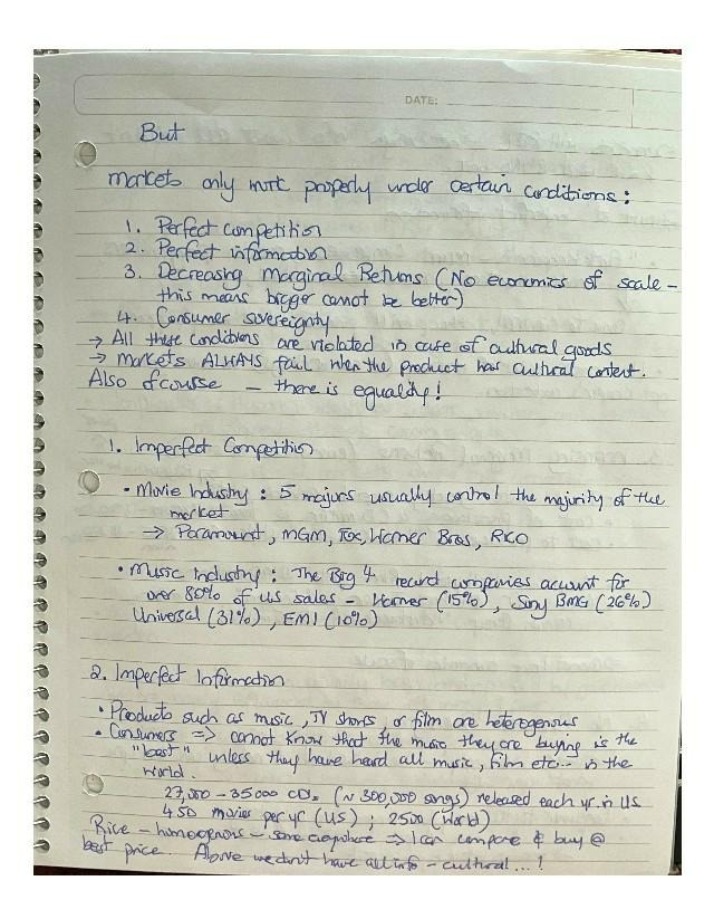 DATE:
But
markets only work properly under certain conditions:
1. Perfect competition
2. Perfect information
3. Decreasing Marginal Returns (No economics of scale -
this means bigger cannot be better)
4. Consumer sovereignty
→ All these conditions are violated in case of cultural goods
→ markets ALWAYS fail when the product has cultural content.
Also ofcourse — there is equality!
1. Imperfect Competition
• Movie Industry : 5 majors usually control the majority of the
market
→ Paramount, MGM, Fox, Warner Bros, RKO
• Music Industry : The Big 4 record companies account for
over 80% of US sales - Warner (15%), Sony BMG (26%)
Universal (31%), EMI (10%)
2. Imperfect Information
• Products such as music, TV shows, or film are heterogenous
• Consumers => cannot know that the music they are buying is the
"best" unless they have heard all music, film etc... in the
world.
27,000 - 35000 CDs (~ 300,000 songs) released each yr. in US
450 movies per yr (US) ; 2500 (World)
Rice - homogenous - same => I can compare & buy @
best price. Above we don't have all info - cultural ... !